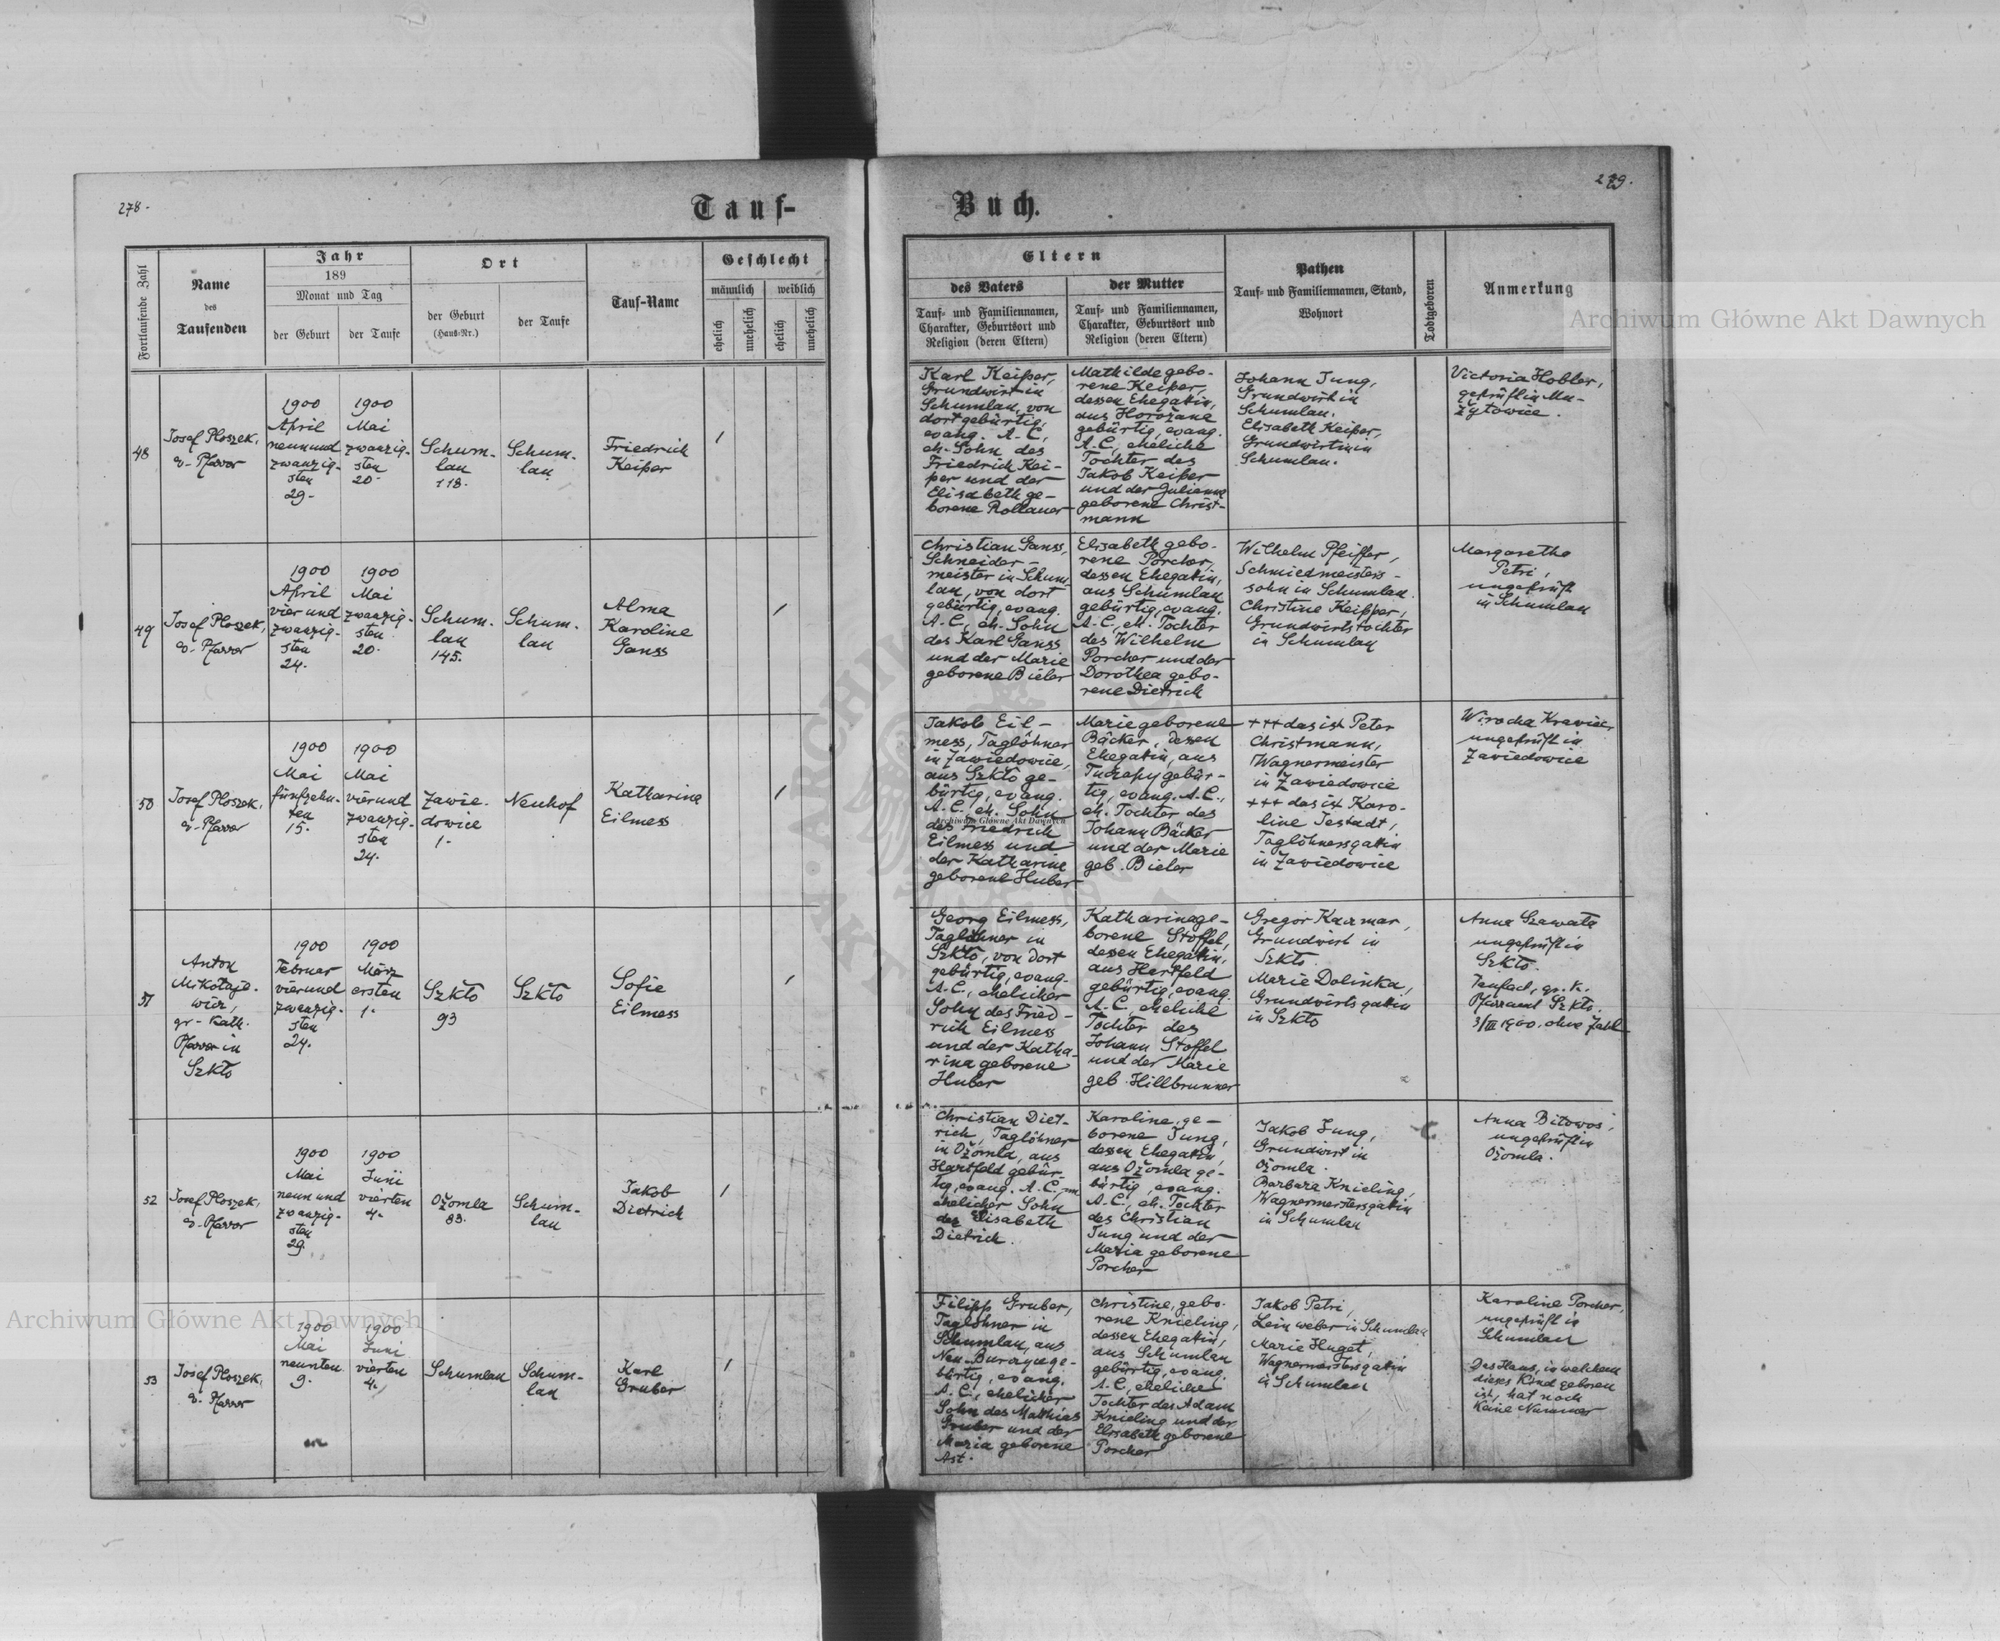 278.
Tauf-
Buch.
279.
Fortlaufende Zahl
Name
des
Taufenden
Jahr
189
Monat und Tag
der Geburt
der Taufe
Ort
der Geburt
(Haus-Nr.)
der Taufe
Tauf-Name
Geschlecht
männlich
weiblich
ehelich
unehelich
ehelich
unehelich
Eltern
des Vaters
Tauf- und Familiennamen,
Charakter, Geburtsort und
Religion (deren Eltern)
der Mutter
Tauf- und Familiennamen,
Charakter, Geburtsort und
Religion (deren Eltern)
Pathen
Tauf- und Familiennamen, Stand,
Wohnort
Todtgeboren
Anmerkung
Archiwum Główne Akt Dawnych
48
Josef Ploszek,
ev. Pfarrer
1900
April
neunund
zwanzig-
sten
29.
1900
Mai
zwanzig-
sten
20.
Schum-
lau
118.
Schum-
lau
Friedrich
Keiper
1
Karl Keiper,
Grundwirt in
Schumlau, von
dort gebürtig,
evang. A.C.,
eh. Sohn des
Friedrich Kei-
per und der
Elisabeth ge-
borene Rollauer
Mathilde gebo-
rene Keiper,
dessen Ehegatin,
aus Horożana
gebürtig, evang.
A.C., eheliche
Tochter des
Jakob Keiper
und der Julienne
geborene Christ-
mann
Johann Jung,
Grundwirt in
Schumlau.
Elisabeth Keiper,
Grundwirtin in
Schumlau.
Victoria Hobler,
geprüft in Mu-
żyłowice.
49
Josef Ploszek,
ev. Pfarrer
1900
April
vier und
zwanzig-
sten
24.
1900
Mai
zwanzig-
sten
20.
Schum-
lau
145.
Schum-
lau
Alma
Karoline
Ganss
1
Christian Ganss,
Schneider-
meister in Schum-
lau, von dort
gebürtig, evang.
A.C., eh. Sohn
des Karl Ganss
und der Marie
geborene Bieler
Elisabeth gebo-
rene Porcher,
dessen Ehegatin,
aus Schumlau
gebürtig, evang.
A.C., eh. Tochter
des Wilhelm
Porcher und der
Dorothea gebo-
rene Dietrich
Wilhelm Pfeiffer,
Schmiedmeisters-
sohn in Schumlau.
Christine Keipper,
Grundwirtstochter
in Schumlau
Margarethe
Petri,
ungeprüft
in Schumlau
50
Josef Ploszek,
ev. Pfarrer
1900
Mai
fünfzehn-
ten
15.
1900
Mai
vierund
zwanzig-
sten
24.
Zawie-
dowice
1.
Neuhof
Katharine
Eilmess
1
Jakob Eil-
mess, Taglöhner
in Zawiedowice,
aus Szkło ge-
bürtig, evang.
A.C. eh. Sohn
des Friedrich
Eilmess und
der Katharine
geborene Huber
Marie geborene
Bäcker, dessen
Ehegatin, aus
Tuczapy gebür-
tig, evang. A.C.,
eh. Tochter des
Johann Bäcker
und der Marie
geb. Bieler
+++ das ist Peter
Christmann,
Wagnermeister
in Zawiedowice
+++ das ist Karo-
line Jestadt,
Taglöhnersgatin
in Zawiedowice
ungeprüft in
Zawiedowice
Archiwum Główne Akt Dawnych
51
Anton
Mikołaje-
wicz,
gr.-kath.
Pfarrer in
Szkło
1900
Februar
vierund
zwanzig-
sten
24.
1900
März
ersten
1.
Szkło
93
Szkło
Sofie
Eilmess
1
Georg Eilmess,
Taglöhner in
Szkło, von dort
gebürtig, evang.
A.C., ehelicher
Sohn des Fried-
rich Eilmess
und der Katha-
rina geborene
Huber
Katharina ge-
borene Stoffel,
dessen Ehegatin,
aus Hartfeld
gebürtig, evang.
A.C. eheliche
Tochter des
Johann Stoffel
und der Marie
geb. Hillbrunner
Gregor Kaczmar,
Grundwirt in
Szkło.
Marie Dolinka,
Grundwirtsgatin
in Szkło
Anna Szawała
ungeprüft in
Szkło.
Taufsch. gr. k.
Pfarramt Szkło.
3/III 1900. ohne Zahl
52
Josef Ploszek,
ev. Pfarrer
1900
Mai
neun und
zwanzig-
sten
29.
1900
Juni
vierten
4.
Ożomla
83.
Schum-
lau
Jakob
Dietrich
1
Christian Diet-
rich, Taglöhner
in Ożomla, aus
Hartfeld gebür-
tig, evang. A.C., un-
ehelicher Sohn
der Elisabeth
Dietrich.
Karoline, ge-
borene Jung,
dessen Ehegatin,
aus Ożomla ge-
bürtig, evang.
A.C., eh. Tochter
des Christian
Jung und der
Maria geborene
Porcher
Jakob Jung,
Grundwirt in
Ożomla.
Barbara Knieling,
Wagnermeistersgatin
in Schumlau
Anna Bitowos,
ungeprüft in
Ożomla.
53
Josef Ploszek,
ev. Pfarrer
1900
Mai
neunten
9.
1900
Juni
vierten
4.
Schumlau
Schum-
lau
Karl
Gruber
1
Filipp Gruber,
Taglöhner in
Schumlau, aus
Neu-Burczyce ge-
bürtig, evang.
A.C., ehelicher
Sohn des Mathias
Gruber und der
Maria geborene
Ast.
Christine, gebo-
rene Knieling,
dessen Ehegatin,
aus Schumlau
gebürtig, evang.
A.C., eheliche
Tochter des Adam
Knieling und der
Elisabeth geborene
Porcher
Jakob Petri,
Leinweber in Schumlau
Marie Huget,
Wagnermeistersgatin
in Schumlau
Karoline Porcher,
ungeprüft in
Schumlau
Das Haus, in welchem
dieses Kind geboren
ist, hat noch
keine Nummer
Archiwum Główne Akt Dawnych